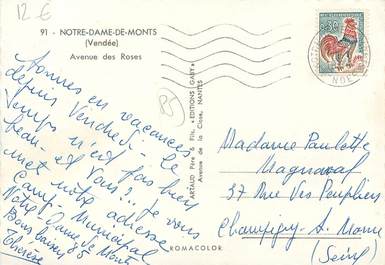 12 €
91 - NOTRE-DAME-DE-MONTS
(Vendée)
Avenue des Roses
Sommes en vacances
depuis Vendredi. Le
temps n'est pas bien
beau. et Vous ?. Je vous
met notre adresse
Camp. Municipal
Notre Dame de Monts
85
Bons baisers
Thérèse
ARTAUD Père & Fils, "EDITIONS GABY"
Avenue de la Close, NANTES
ROMACOLOR
0,30
Madame Paulette
37 Rue des Peupliers
Champigny s. Marne
(Seine)